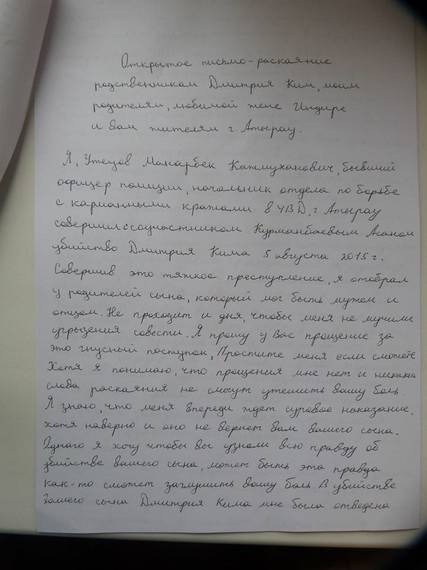 Открытое письмо-раскаяние
родственникам Дмитрия Ким, моим
родителям, любимой жене Индире
и Вам жителям г. Атырау.
Я, Утецов Манарбек Кажмуханович, бывший
офицер полиции, начальник отдела по борьбе
с карманными кражами в УВД, г. Атырау
совершил с соучастником Курманбаевым Асаном
убийство Дмитрия Кима 5 августа 2015 г.
Совершив это тяжкое преступление, я отобрал
у родителей сына, который мог быть мужем и
отцом. Не проходит и дня, чтобы меня не мучили
угрызения совести. Я прошу у Вас прощение за
это гнусный поступок, Простите меня если сможете
Хотя я понимаю, что прощения мне нет и никакие
слова раскаяния не смогут утешить вашу боль
Я знаю, что меня впереди ждет суровое наказание,
хотя наверно и оно не вернет вам вашего сына.
Однако я хочу чтобы вы узнали всю правду об
убийстве вашего сына, может быть эта правда
как-то сможет заглушить вашу боль. В убийстве
вашего сына Дмитрия Кима мне была отведена